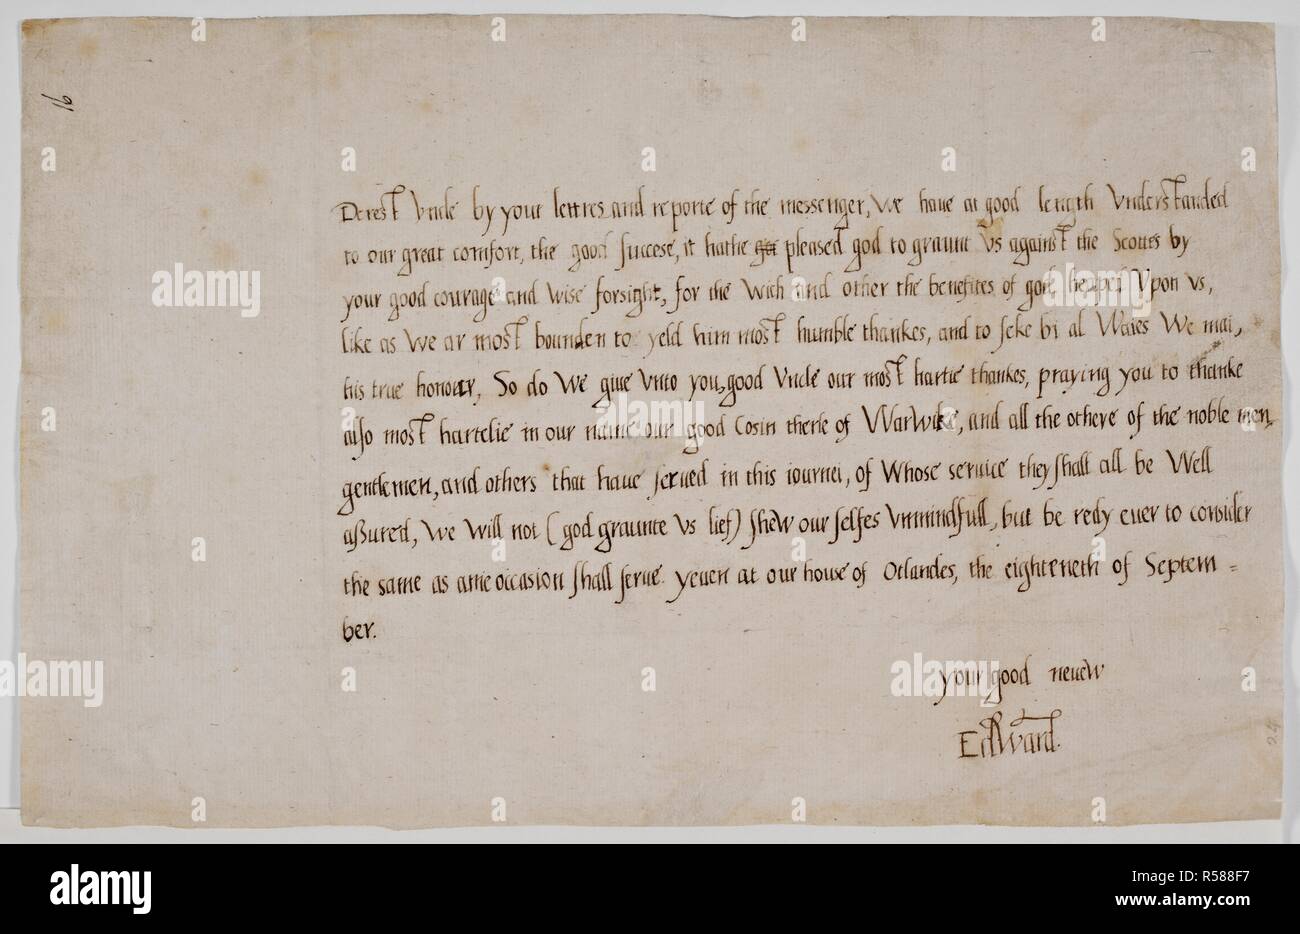 16
Derest Uncle by your lettres and reporte of the messenger, we have at good length understanded
to our great comfort, the good succese, it hathe pleased god to graunt us against the Scottes by
your good courage and wise forsight, for the wich and other the benefites of god heaped upon us,
like as we ar most bounden to yeld him most humble thankes, and to seke bi al waies we mai,
his true honour, So do we give unto you, good Uncle our most hartie thankes, praying you to thanke
also most hartelie in our name our good Cosin therle of Warwike, and all the othere of the noble men,
gentlemen, and others that have served in this iournei, of whose service they shall all be well
assured, we will not (god graunte us lief) shew our selfes unmindfull, but be redy ever to consider
the same as anie occasion shall serve. yeven at our house of Otlandes, the eighteneth of Septem=
ber.
your good neuew
Edward.
24
alamy
Image ID: R588F7
www.alamy.com